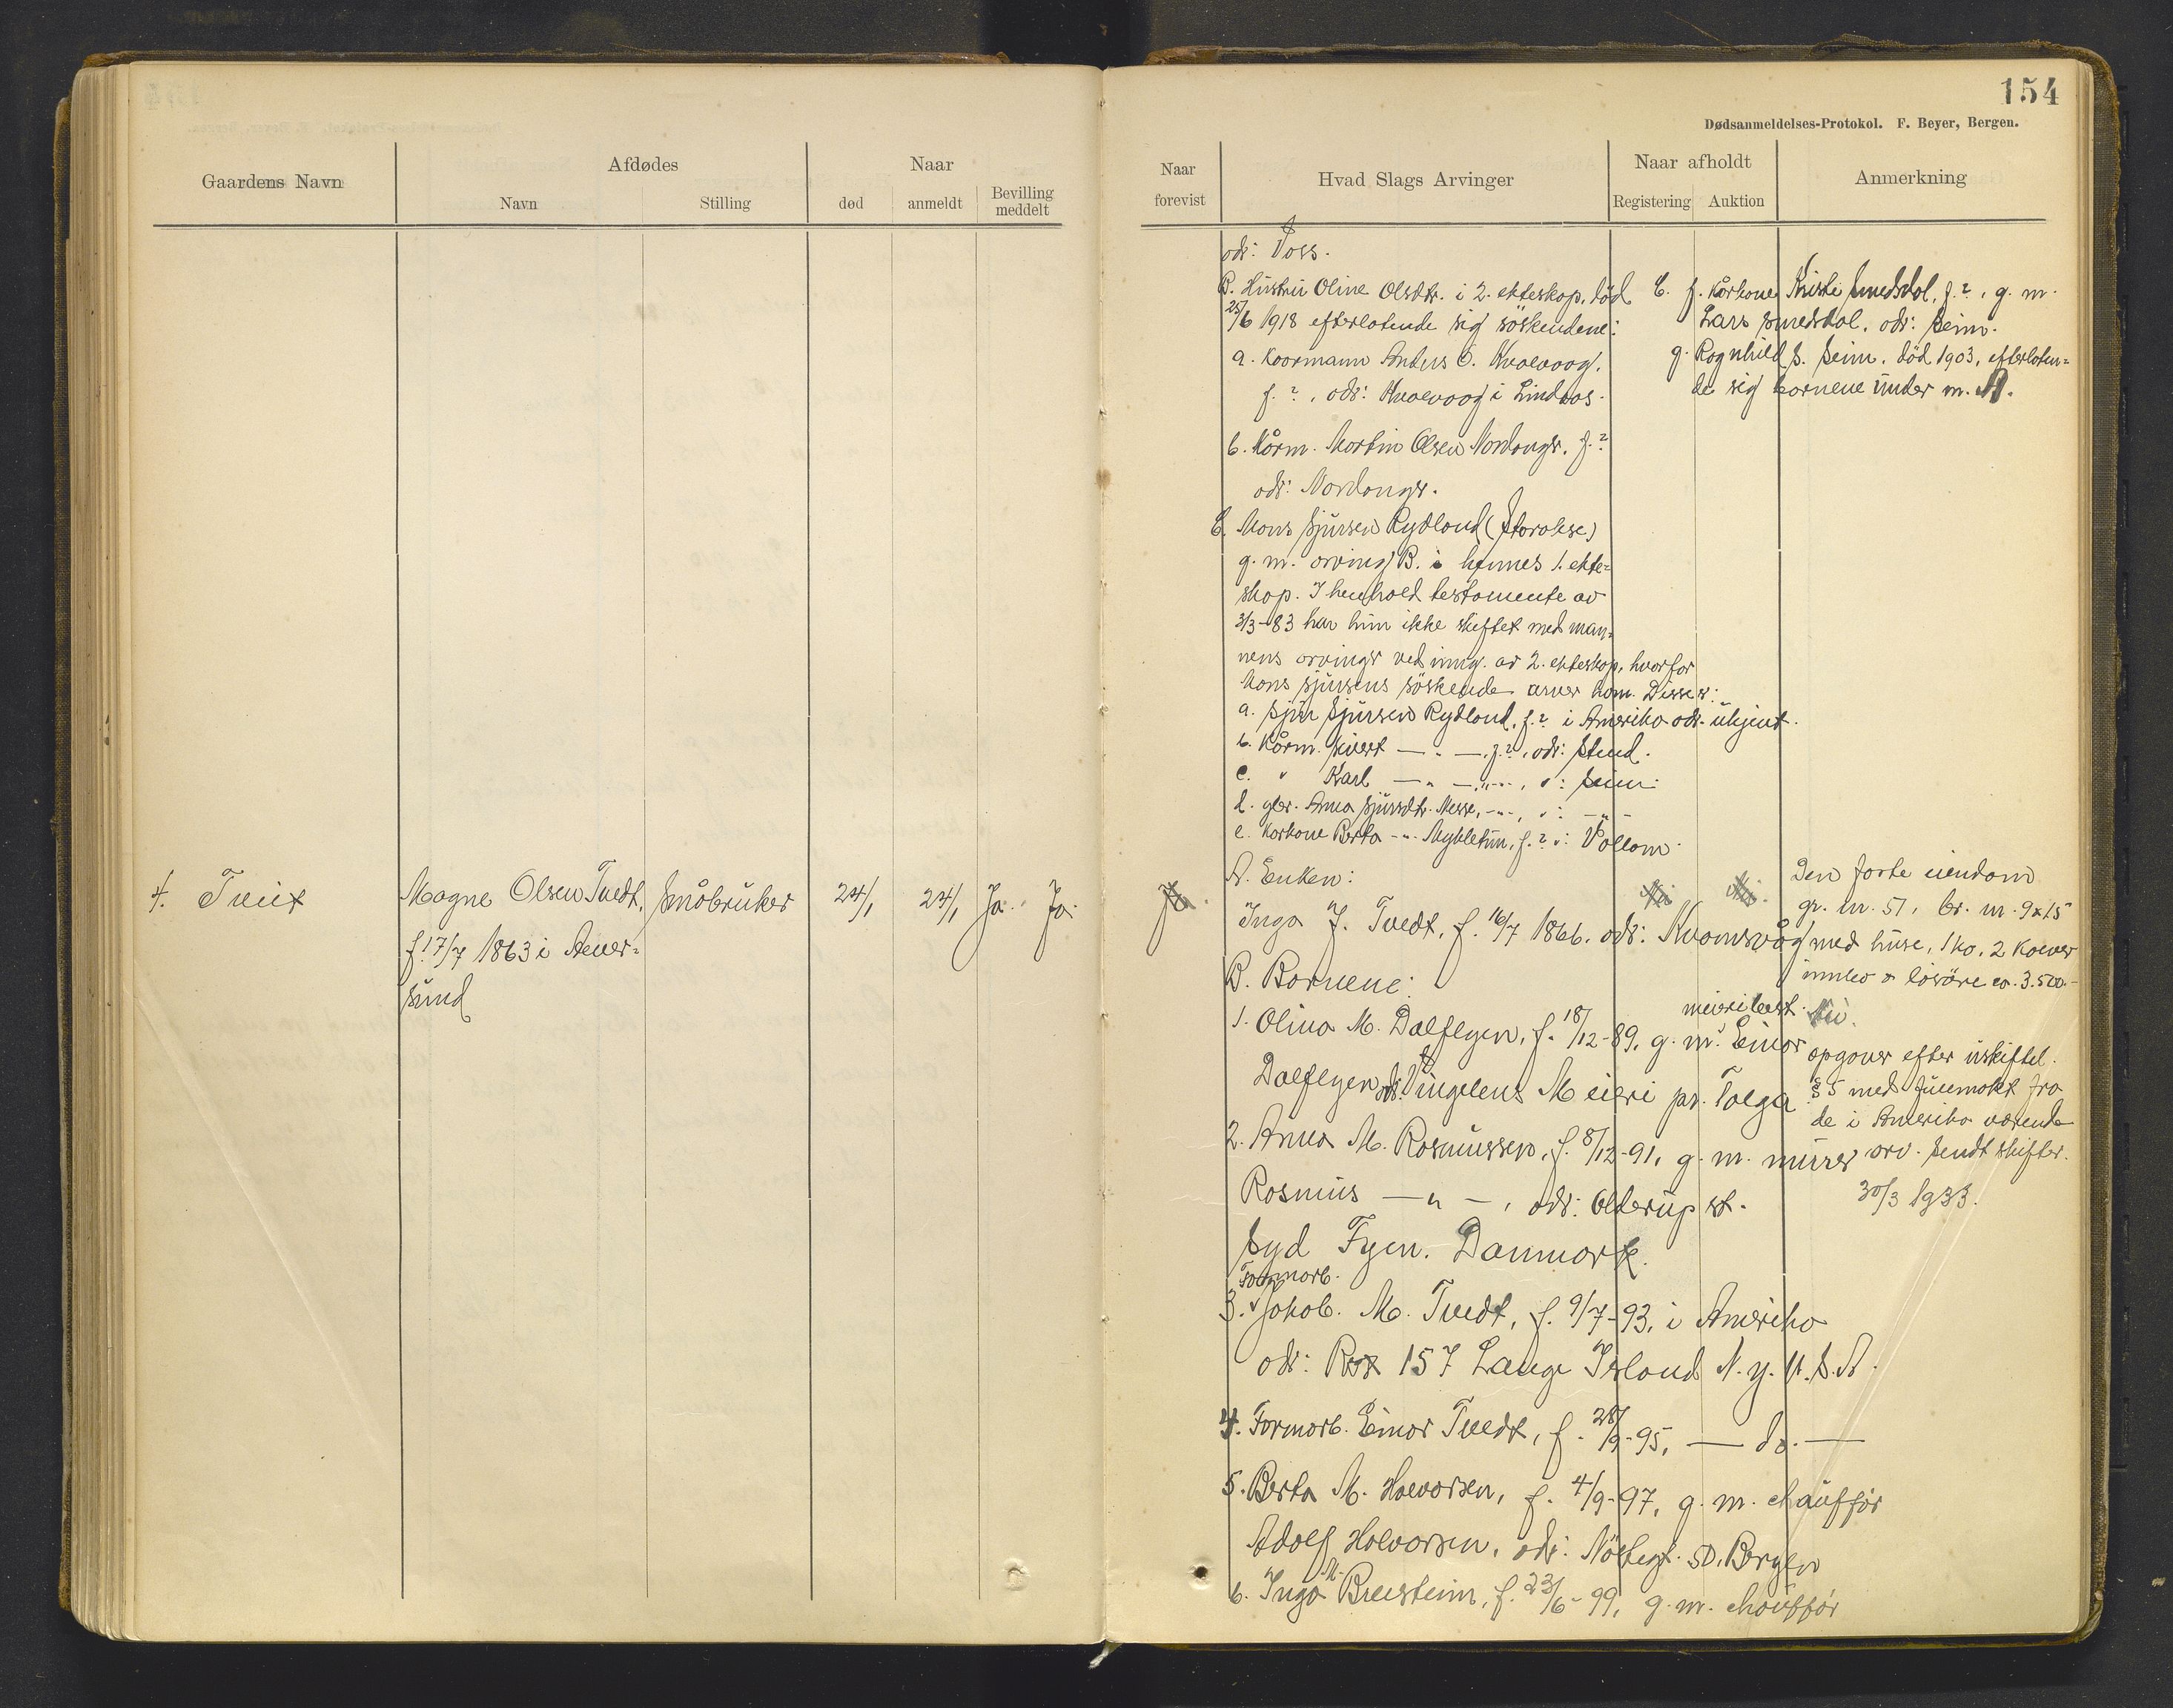 154
Dødsanmeldelses-Protokol. F. Beyer, Bergen.
Gaardens Navn
Afdødes
Navn
Stilling
Naar
død
anmeldt
Bevilling meddelt
Naar forevist
Hvad Slags Arvinger
Naar afholdt
Registering
Auktion
Anmerkning
adr: Voss.
B. Hustru Oline Olsdtr. i 2. ekteskap, död
25/6 1918 efterlatende sig söskendene:
a. Kaarmann Anders O. Kvalvaag,
f. ?, adr: Kvalvaag i Lindaas.
b. Kårm. Martin Olsen Nordanger, f. ?
adr: Nordanger.
C. Mons Sjursen Rydland
g. m. arving B. i hennes 1. ekte=
skap. I henhold testamente av
3/3-83 har hun ikke skiftet med man=
nens arvinger ved inng. av 2. ekteskap, hvorfor
Mons Sjursens söskende arver ham. Disse er:
a. Sjur Sjursen Rydland, f. ? i Amerika adr. ukjent.
b. Kårm. Sivert — " —, f. ?, adr: Seim.
c. " Karl — " — " —, " : Seim.
d. Anna Sjursdtr. Nesse, - " -, " : - " -
e. Karkone Berta - " - Mykletun, f. ? " : Vollom.
C. f. Kårkone Kristi Smedsdal, f. ?, g. m.
Lars Smedsdal, adr: Seim.
g. Ragnhild S. Seim, död 1903, efterlaten=
de sig barnene under nr. A.
4. Tveit
Magne Olsen Tvedt,
f. 17/7 1863 i Aever=
sund
Småbruker
24/1
24/1
Ja.
Ja.
A. Enken:
Inga J. Tvedt, f. 16/7 1866. adr: Kvamsvåg
B. Barnene:
1. Olina M. Dalflyen, f. 18/12-89, g. m. meieribest. Einar
Dalflyen adr. Vingelens Meieri pr. Tolga
2. Anna M. Rasmussen, f. 8/12-91, g. m. murer
Rasmus — " —, adr: Otterup st.
Syd Fyen. Danmark.
3. Farmarb. Jakob. M. Tvedt, f. 9/7-93, i Amerika
adr: Box 157 Lange Island N. Y. U.S.A.
4. Farmarb. Einar Tvedt, f. 28/9-95, — do. —
5. Berta M. Halvorsen, f. 4/9-97, g. m. chauffør
Adolf Halvorsen, adr: Nöstegt. 50, Bergen
6. Inga M. Breistein, f. 23/6-99, g. m. chauffør
Den faste eiendom
gr. nr. 51, br. nr. 9 & 15
med huse, 1 ko, 2 kalver
innbo & lösöre ca. 3.500.-
Nei.
opgaver efter uskiftel.
§ 5 med fullmakt fra
de i Amerika værende
arv. sendt skifter.
30/3 1933.